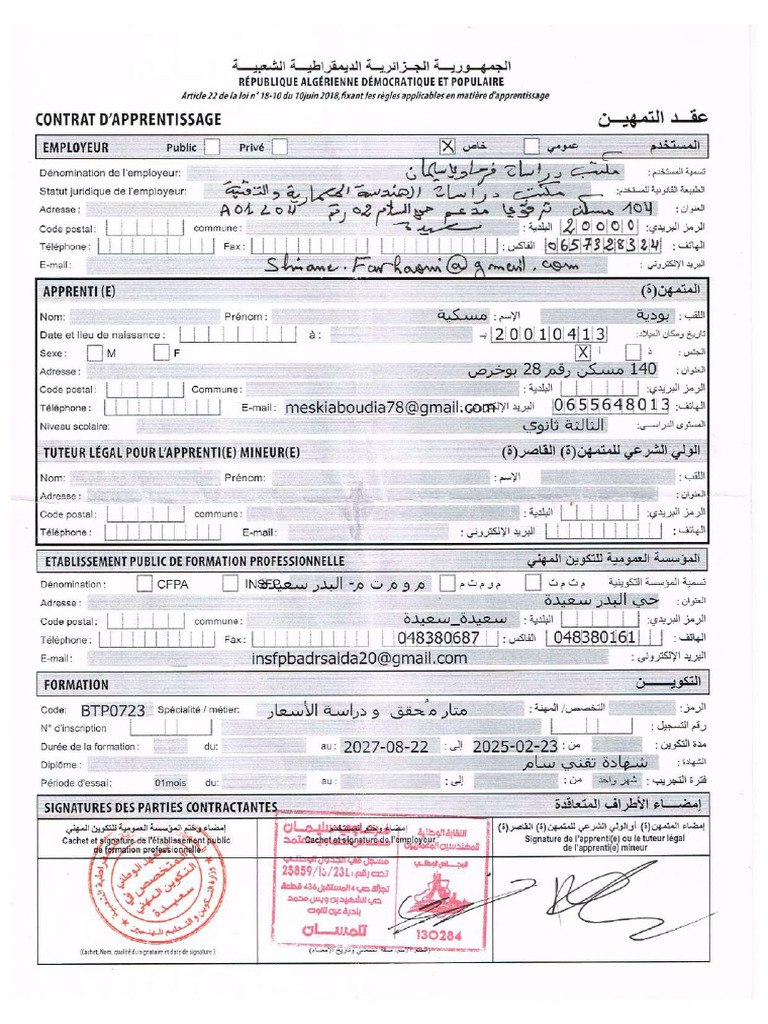 الجمهورية الجزائرية الديمقراطية الشعبية
RÉPUBLIQUE ALGÉRIENNE DÉMOCRATIQUE ET POPULAIRE
Article 22 de la loi n° 18-10 du 10juin 2018, fixant les règles applicables en matière d'apprentissage
CONTRAT D'APPRENTISSAGE عقد التمهين
EMPLOYEUR Public Privé X خاص عمومي المستخدم
Dénomination de l'employeur: مكتب دراسات فرحاوي سليمان تسمية المستخدم :
Statut juridique de l'employeur: مكتب دراسات الهندسة المعمارية والتقنية الطبيعة القانونية للمستخدم:
Adresse : 104 مسكن ترقوي مدعم حي السلام 02 رقم A01L04 العنوان :
Code postal : commune : سعيدة البلدية : 20000 الرمز البريدي:
Téléphone : Fax : الفاكس : 0657328324 الهاتف :
E-mail : @gmail.com البريد الإلكتروني :
APPRENTI (E) المتمهن(ة)
Nom: Prénom : مسكية الإسم : بودية اللقب :
Date et lieu de naissance : à : بـ 20010413 تاريخ ومكان الميلاد:
Sexe : M F X أ ذ الجنس :
Adresse : 140 مسكن رقم 28 بوخرص العنوان :
Code postal : Commune : البلدية : الرمز البريدي:
Téléphone : E-mail : meskiaboudia78@gmail.com البريد الإلكتروني : 0655648013 الهاتف:
Niveau scolaire: الثالثة ثانوي المستوى الدراسي:
TUTEUR LÉGAL POUR L'APPRENTI(E) MINEUR(E) الولي الشرعي للمتمهن(ة) القاصر(ة)
Nom: Prénom: الإسم : اللقب :
Adresse : العنوان :
Code postal : commune : البلدية : الرمز البريدي:
Téléphone : E-mail : البريد الإلكتروني : الهاتف :
ETABLISSEMENT PUBLIC DE FORMATION PROFESSIONNELLE المؤسسة العمومية للتكوين المهني
Dénomination : CFPA INSFP م و م ت م- البدر سعيدة م و م ت م م ت م ت تسمية المؤسسة التكوينية
Adresse : حي البدر سعيدة العنوان :
Code postal : commune : سعيدة_سعيدة البلدية : الرمز البريدي:
Téléphone : Fax : 048380687 الفاكس : 048380161 الهاتف :
E-mail : insfpbadrsaida20@gmail.com البريد الإلكتروني :
FORMATION التكوين
Code: BTP0723 Spécialité / métier: متار مُحقق و دراسة الأسعار التخصص/ المهنة : الرمز:
N° d'inscription رقم التسجيل :
Durée de la formation : du: au : 2027-08-22 إلى : 2025-02-23 من : مدة التكوين :
Diplôme : شهادة تقني سام الشهادة :
Période d'essai: 01mois du: au : إلى : من : شهر واحد فترة التجريب :
SIGNATURES DES PARTIES CONTRACTANTES إمضاء الأطراف المتعاقدة
إمضاء وختم المؤسسة العمومية للتكوين المهني
Cachet et signature de l'établissement public
de formation professionnelle
Cachet et signature de l'employeur
إمضاء المتمهن(ة) أو الولي الشرعي للمتمهن(ة) القاصر(ة)
Signature de l'apprenti(e) ou le tuteur légal
de l'apprenti(e) mineur
وزارة التكوين و التعليم المهنيين
المعهد الوطني
المتخصص في
التكوين المهني
سعيدة
مسجل في الجدول الوطني
تحت رقم: 25859/ا/23L
تجزئة حي المستقبل 436 قطعة
حي الشهيد بن ويس محمد
بلدية عين تالوت
تلمسان
النقابة الوطنية
للمهندسين المعماريين
المجلس الوطني
130284
(Cachet, Nom, qualité du signataire et date de signature )